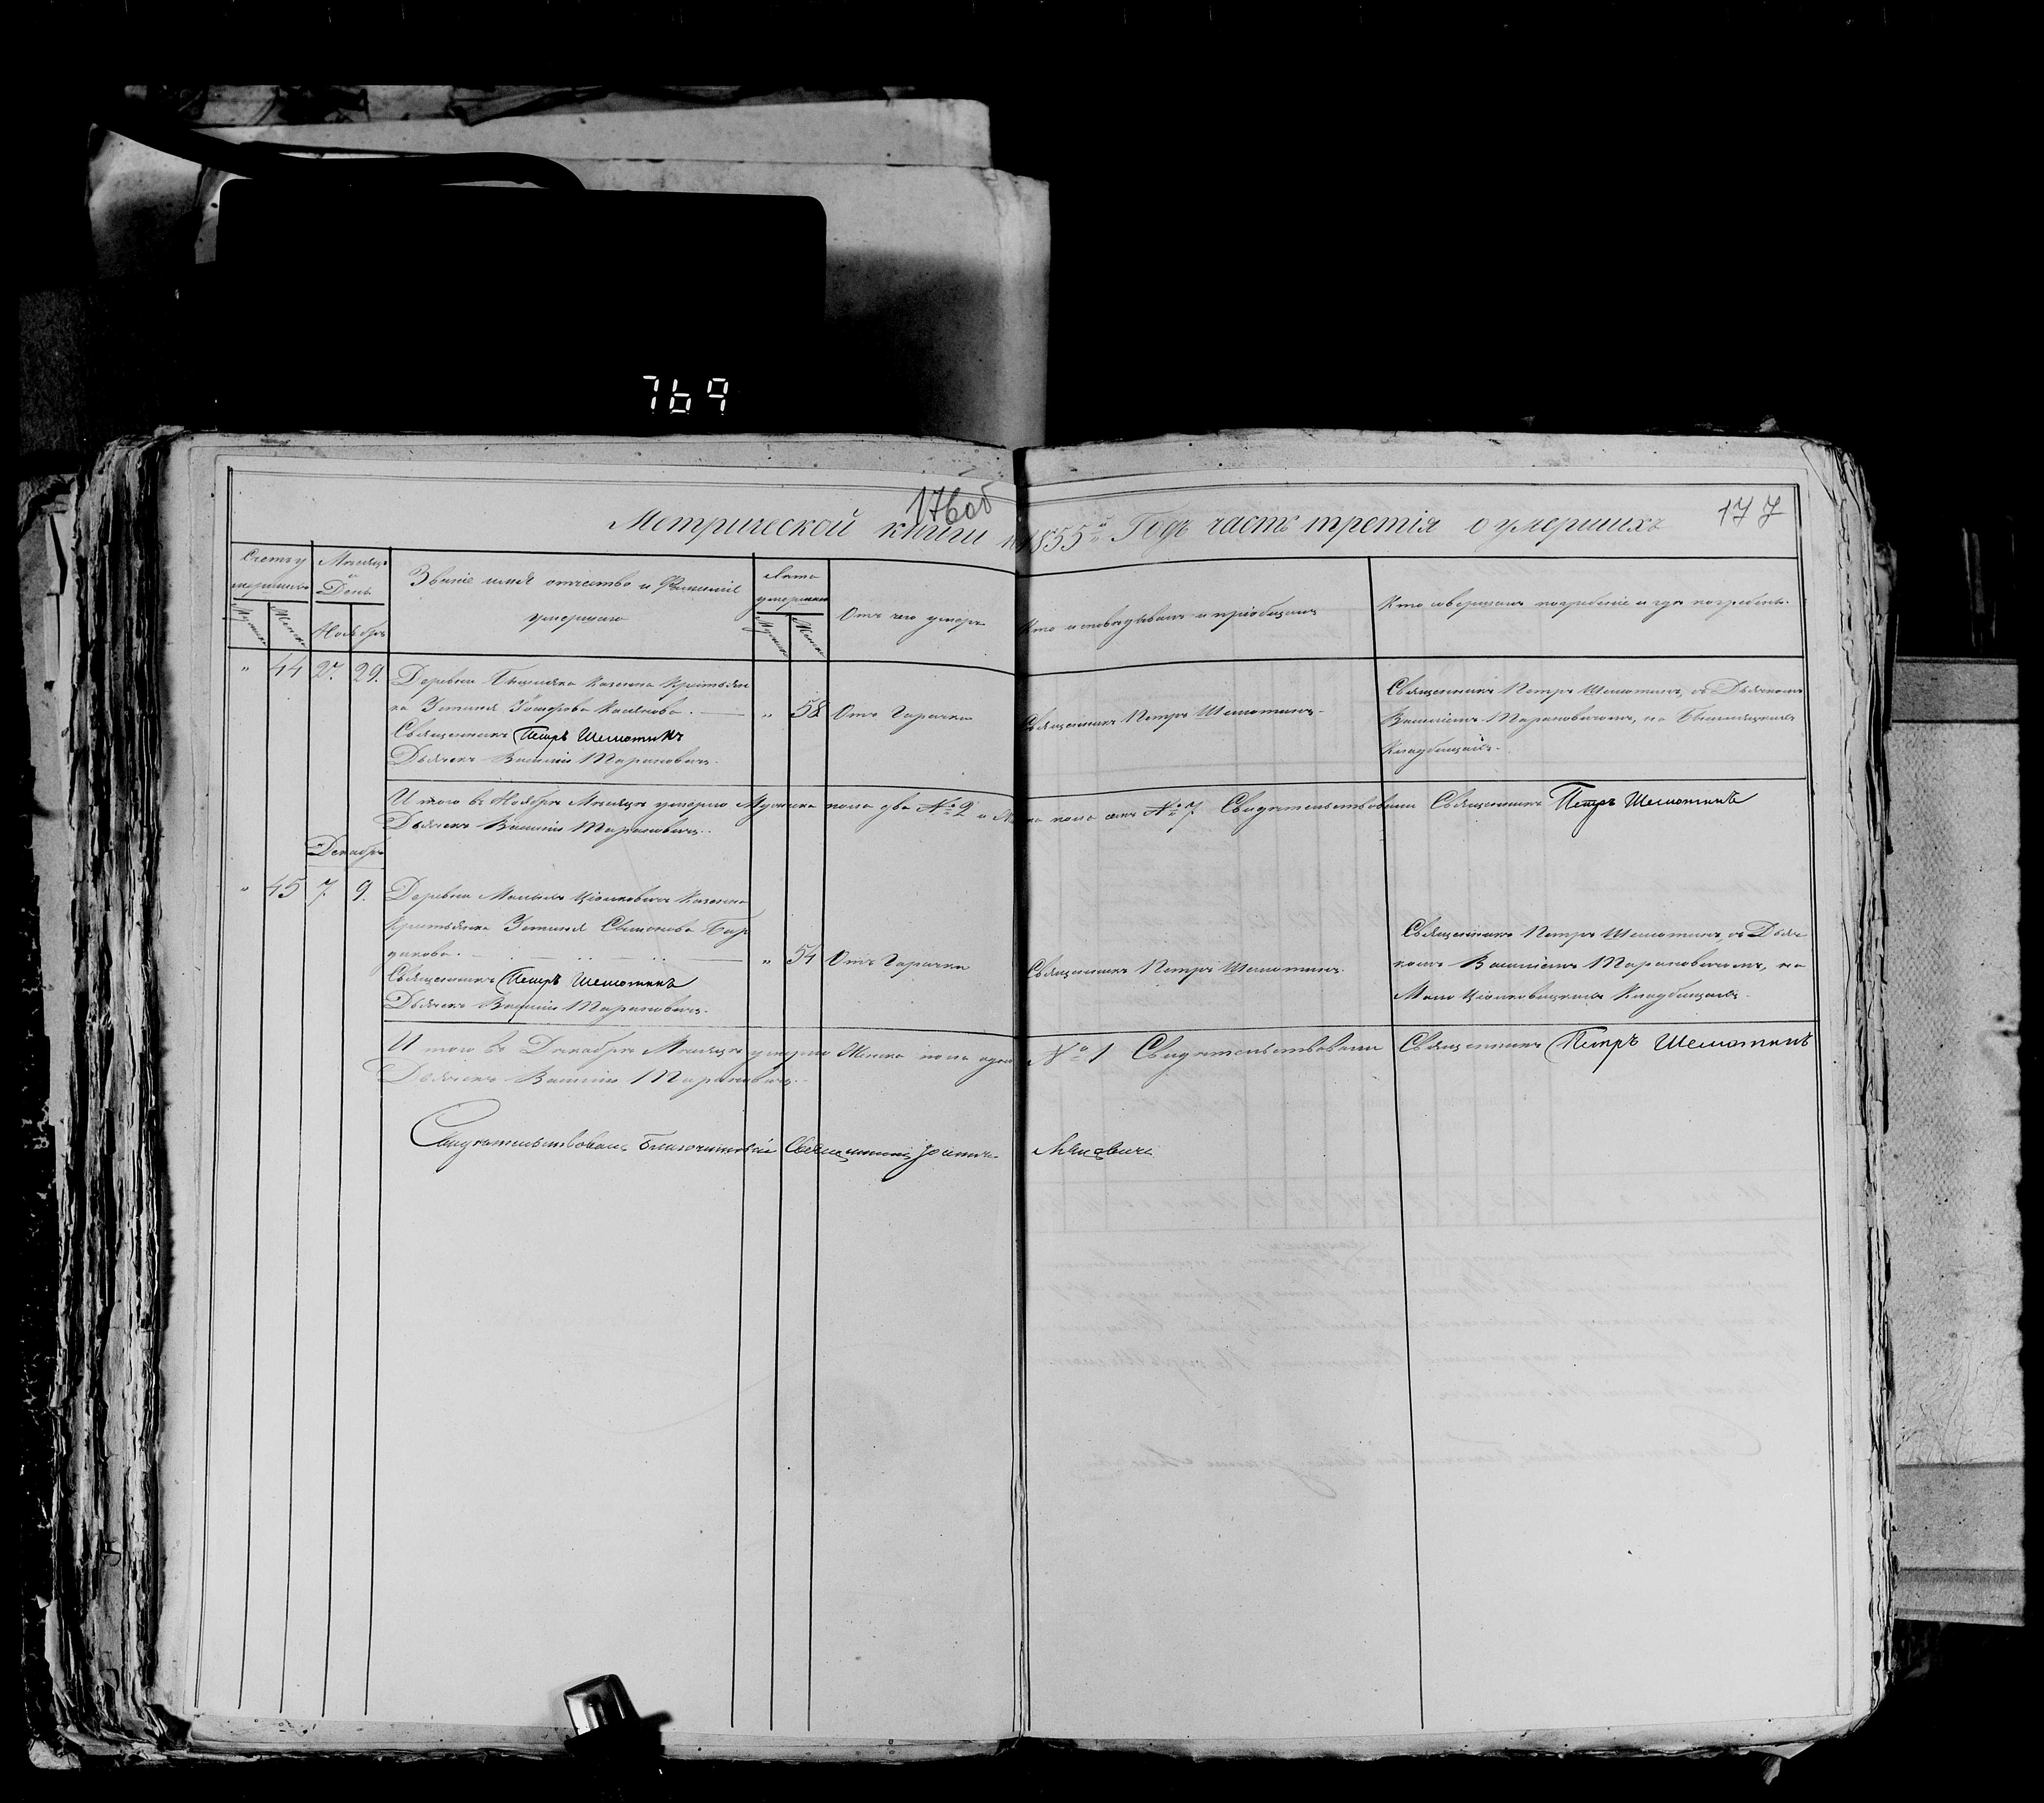 769
176об
177
Метрической книги на 1855й Годъ часть третія о умершихъ
Счетъ у
мершихъ
Мужска
Женска
Мѣсяцъ
и
День
Ноябрь
Званіе имя отчество и Фамиліе
умершаго
Лета
умершаго
Мужска
Женска
Отъ чего умеръ
Кто исповедывалъ и пріобщалъ
Кто совершалъ погребеніе и гдѣ погребенъ.
" 44 27. 29.
Деревни казенна крестьян
ка
Священникъ Петръ Шелютинъ
Дьячекъ Василій Тарановичъ.
" 58 Отъ Горячки
Священникъ Петръ Шелютинъ.
Священникъ Петръ Шелютинъ, съ Дьячкомъ
Василіемъ Тарановичемъ, на
Кладбищахъ.
И того въ Ноябрѣ Мѣсяцѣ умерло Мужска пола два № 2 и пола семь № 7 Свидѣтельствовали Священникъ Петръ Шелютинъ
Дьячекъ Василій Тарановичъ.
Декабрь
" 45 7. 9.
Деревни Малыхъ Казенна
Крестьянка Семенова
Священникъ Петръ Шелютинъ
Дьячекъ Василій Тарановичъ.
" 54 Отъ Горячки
Священникъ Петръ Шелютинъ.
Священникъ Петръ Шелютинъ, съ Дьяч
комъ Василіемъ Тарановичемъ, на
Мало Кладбищахъ.
И того въ Декабрѣ Мѣсяцѣ умерло Женска пола одна № 1 Свидѣтельствовали Священникъ Петръ Шелютинъ
Дьячекъ Василій Тарановичъ.
Свидѣтельствовалъ Благочинный Священникъ